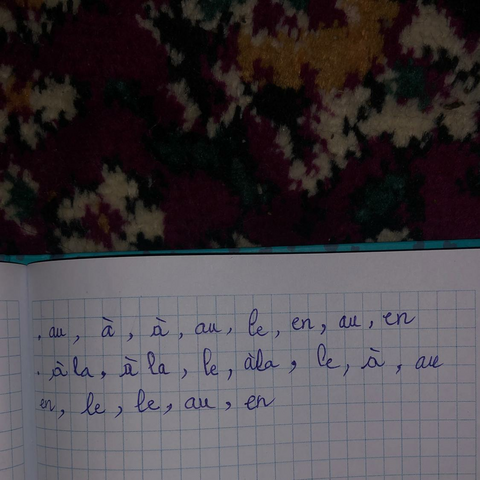 , au, à, à, au, le, en, au, en
. à la, à la, le, à la, le, à, au
en, le, le, au, en